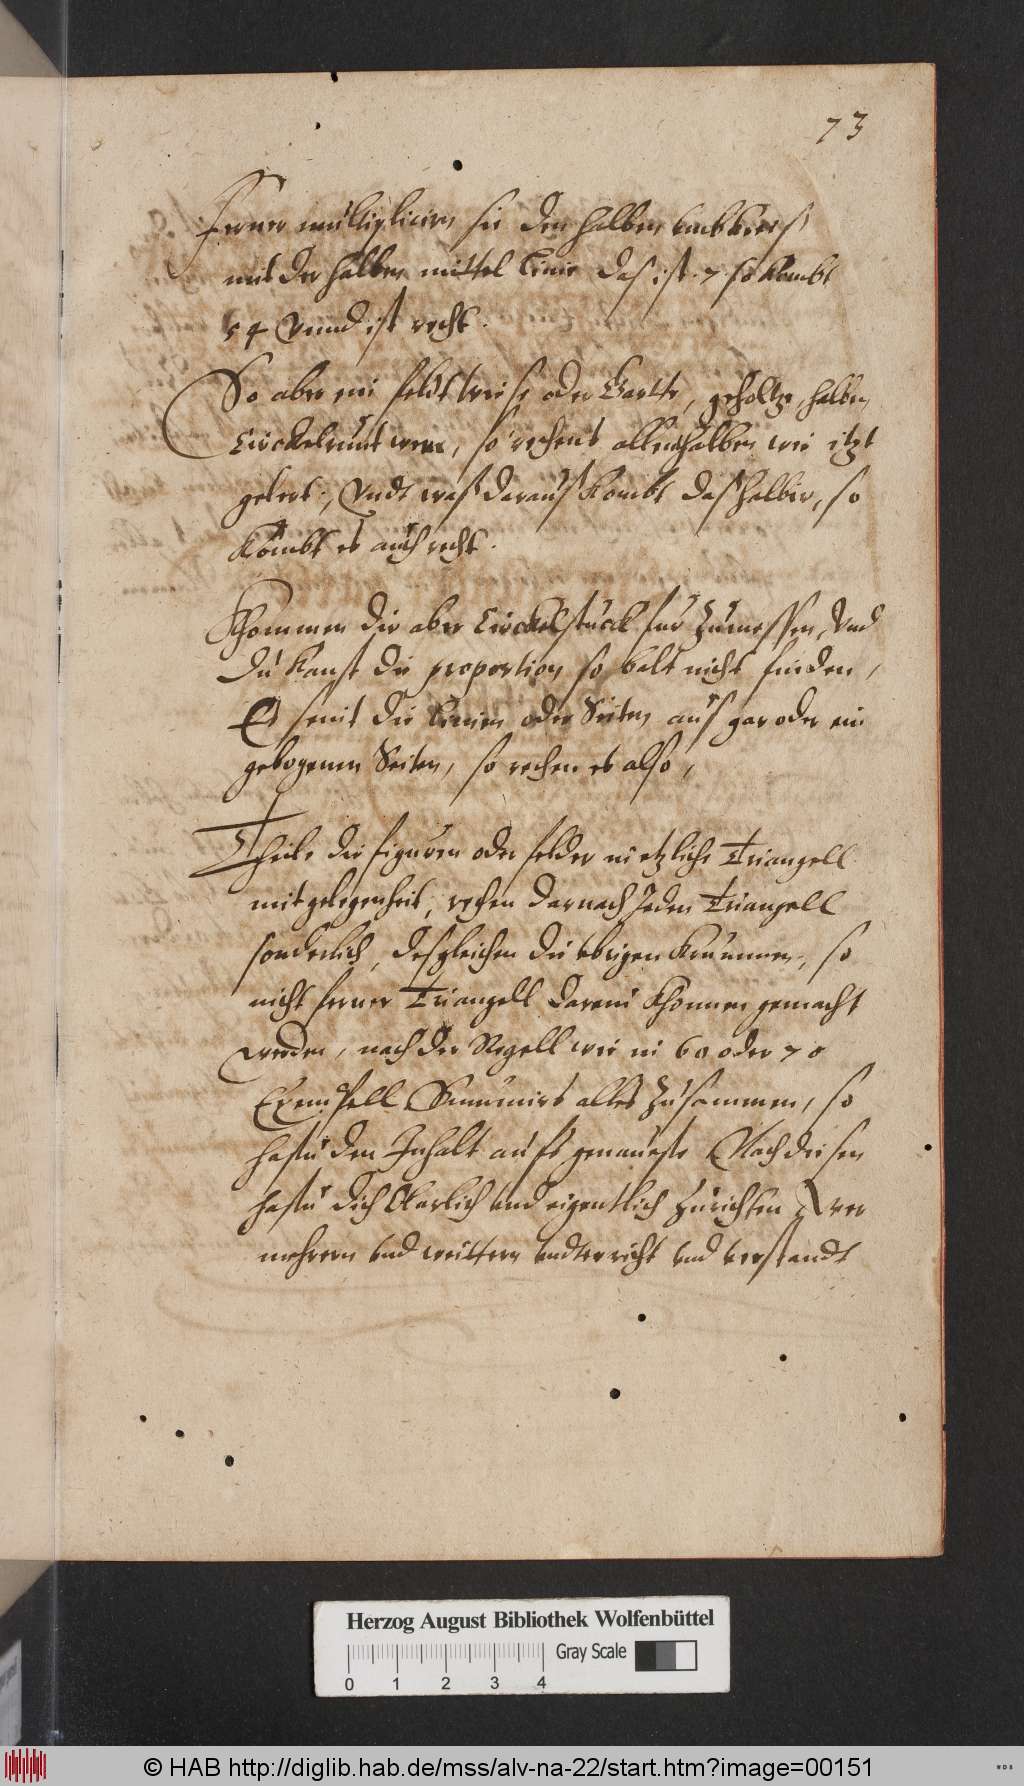 73
Ferner multiplicirn sie den halben umbkreis
mit der halben mittel Linie das ist 7 so kombt
54 Vnnd ist recht.
So aber ein feldt wiese oder Gartte, geholtze, halben
Circkelrunt were, so rechens allenthalben wie itzt
gelert, Vndt was daraus kombt das halbir, so
kombt es auch recht.
Khommen dir aber Circkelstuck fur Zumessen, Vnd
du kanst die proportion so balt nicht finden,
Es seint die Linien oder Seiten aus gar oder ein
gebogenen Seiten, so rechen es also,
Theile die figuren oder felder in etzliche Triangell
mit gelegenheit, rechen darnach Jeden Triangell
sonderlich, desgleichen die vbrigen Krummen, so
nicht ferner Triangell darein khonnen gemacht
werden, nach der Regell wie in 60 oder 70
Exempell Summirs alles Zusammen, so
hastu den Inhalt aufs genaueste Nach diesen
hastu dich klarlich vnd eigentlich Zurichten
mehrern vnd weittern vndterricht vnd verstandt
Herzog August Bibliothek Wolfenbüttel
0 1 2 3 4 Gray Scale
© HAB http://diglib.hab.de/mss/alv-na-22/start.htm?image=00151